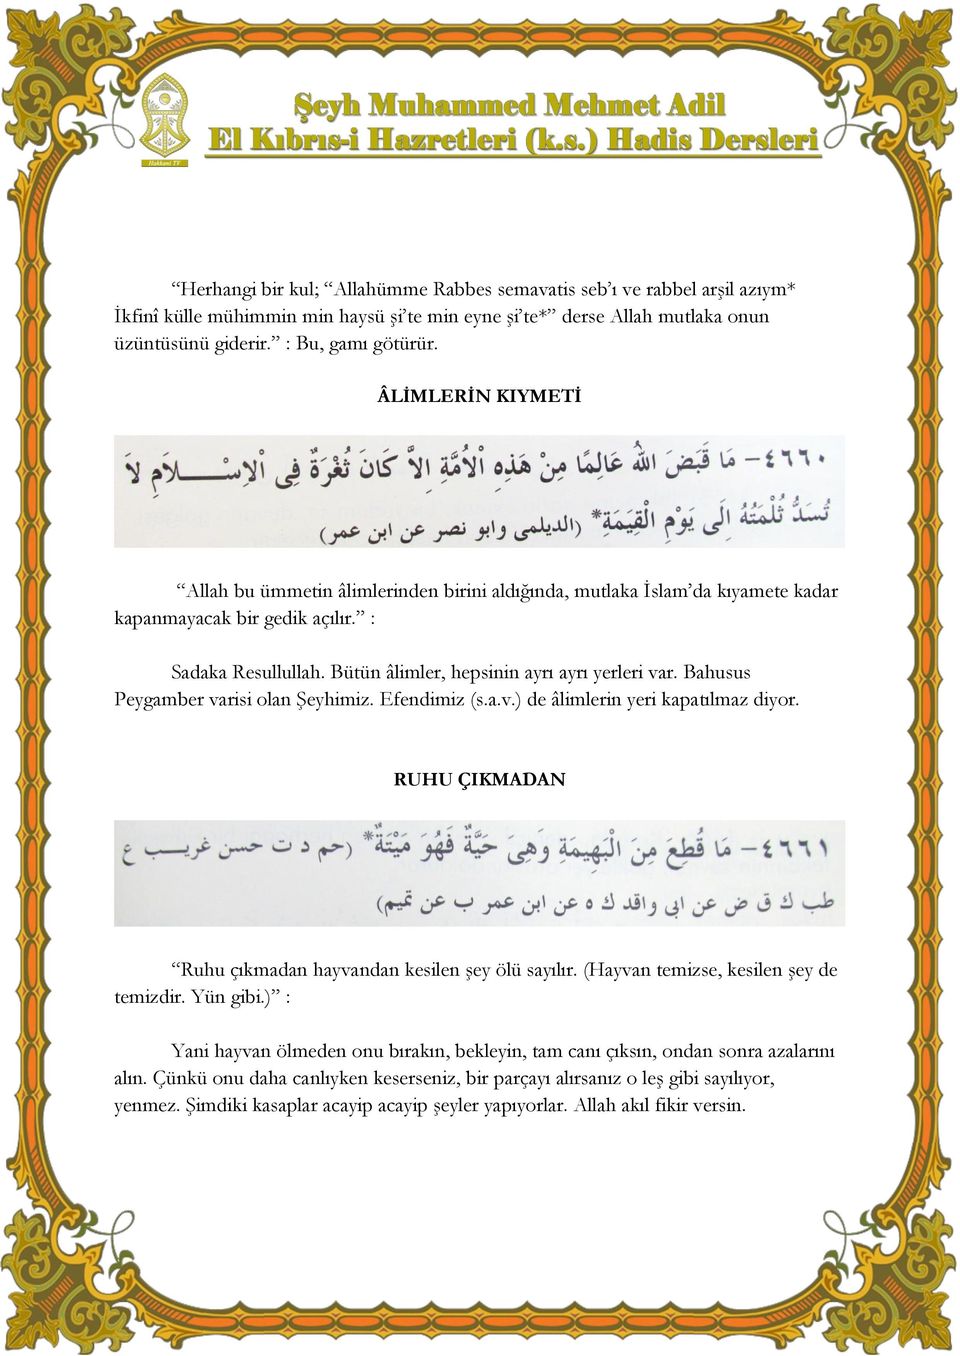 Şeyh Muhammed Mehmet Adil
El Kıbrıs-i Hazretleri (k.s.) Hadis Dersleri
Hakkani TV
“Herhangi bir kul; “Allahümme Rabbes semavatis seb’ı ve rabbel arşil azıym*
İkfinî külle mühimmin min haysü şi’te min eyne şi’te*” derse Allah mutlaka onun
üzüntüsünü giderir.” : Bu, gamı götürür.
ÂLİMLERİN KIYMETİ
٤٦٦٠- مَا قَبَضَ اللهُ عَالِمًا مِنْ هَذِهِ اْلاُمَّةِ اِلاَّ كَانَ ثُغْرَةٌ فِى اْلاِسْـــلاَمِ لاَ
تُسَدُّ ثُلْمَتُهُ اِلَى يَوْمِ الْقِيَمَةِ* (الديلمى وابو نصر عن ابن عمر)
“Allah bu ümmetin âlimlerinden birini aldığında, mutlaka İslam’da kıyamete kadar
kapanmayacak bir gedik açılır.” :
Sadaka Resullullah. Bütün âlimler, hepsinin ayrı ayrı yerleri var. Bahusus
Peygamber varisi olan Şeyhimiz. Efendimiz (s.a.v.) de âlimlerin yeri kapatılmaz diyor.
RUHU ÇIKMADAN
٤٦٦١- مَا قُطِعَ مِنَ الْبَهِيمَةِ وَهِىَ حَيَّةٌ فَهُوَ مَيْتَةٌ* (حم د ت حسن غريـــب ع
طب ك ق ض عن ابى واقد ك ه عن ابن عمر ب عن تميم)
“Ruhu çıkmadan hayvandan kesilen şey ölü sayılır. (Hayvan temizse, kesilen şey de
temizdir. Yün gibi.)” :
Yani hayvan ölmeden onu bırakın, bekleyin, tam canı çıksın, ondan sonra azalarını
alın. Çünkü onu daha canlıyken keserseniz, bir parçayı alırsanız o leş gibi sayılıyor,
yenmez. Şimdiki kasaplar acayip acayip şeyler yapıyorlar. Allah akıl fikir versin.